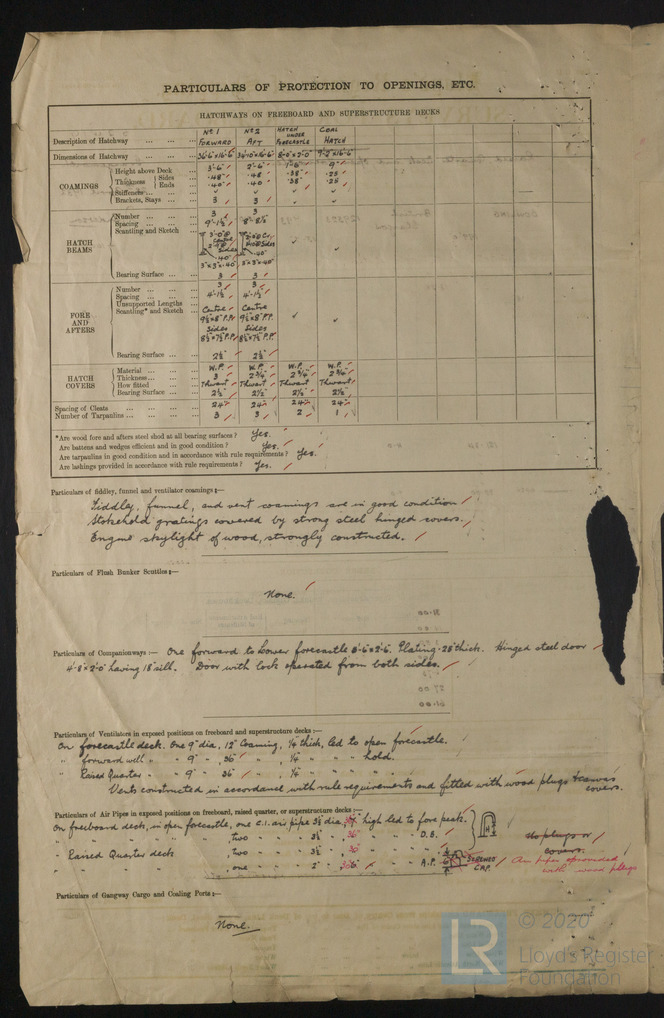 PARTICULARS OF PROTECTION TO OPENINGS, ETC.
HATCHWAYS ON FREEBOARD AND SUPERSTRUCTURE DECKS
Description of Hatchway Nº 1 FORWARD Nº 2 AFT HATCH UNDER FORECASTLE COAL HATCH
Dimensions of Hatchway 36'-6"x16'-6" 8'-0"x7'-0" 9'-2"x16'-6"
COAMINGS
Height above Deck 3'-6" 2'-6" 1'-6" 9"
Thickness Sides .48" .48 .38" .25
Ends .40" .40 .38" .25
Stiffeners
Brackets, Stays 3 3
HATCH BEAMS
Number 3 3
Spacing 9'-1½" 8'-8½"
Scantling and Sketch
Centre
Sides
.40"
3"x3"x.40" 3"x3"x.40"
Bearing Surface 3 3
FORE AND AFTERS
Number 3 3
Spacing 4'-1½" 4'-1½"
Unsupported Lengths
Scantling* and Sketch Centre Centre
9½"x8" P.P. 9½"x8" P.P.
Sides Sides
8½"x7½" P.P. 8½"x7½" P.P.
Bearing Surface 2½" 2½"
HATCH COVERS
Material W.P. W.P. W.P. W.P.
Thickness 3" 2¾" 2¾" 2¾"
How fitted Thwart Thwart Thwart Thwart
Bearing Surface 2½" 2½" 2½" 2½"
Spacing of Cleats 24" 24" 24" 24"
Number of Tarpaulins 3 3 2 1
*Are wood fore and afters steel shod at all bearing surfaces? Yes.
Are battens and wedges efficient and in good condition? Yes.
Are tarpaulins in good condition and in accordance with rule requirements? Yes.
Are lashings provided in accordance with rule requirements? Yes.
Particulars of fiddley, funnel and ventilator coamings:—
Fiddley, funnel, and vent coamings are in good condition
Stokehold gratings covered by strong steel hinged covers.
Engine skylight of wood, strongly constructed.
Particulars of Flush Bunker Scuttles:—
None.
Particulars of Companionways:— One forward to lower forecastle 2'-6. Plating .28 thick. Hinged steel door
4'-8"x2'-0" having 18" sill. Door with lock operated from both sides.
Particulars of Ventilators in exposed positions on freeboard and superstructure decks:—
On forecastle deck. One 9" dia, 12" Coaming, ¼" thick, led to open forecastle.
" forward well " " 9" " , 36" " , ¼" " " " hold.
" Raised Quarter " " 9" " 36" " , ¼" " " " "
Vents constructed in accordance with rule requirements and fitted with wood plugs & canvas covers.
Particulars of Air Pipes in exposed positions on freeboard, raised quarter, or superstructure decks:—
On freeboard deck, in open forecastle, one C.I. air pipe 3½" dia, high led to fore peak.
" " " " " , two " " 3½" " , 36" " " " D.B.
" Raised Quarter deck , two " " 3½ " , 30" " "
" " " " , one " " 2" " " " " A.P. SCREWED CAP.
No plugs or covers.
Air pipes provided with wood plugs
Particulars of Gangway Cargo and Coaling Ports:—
None.
LR © 2020
Lloyd's Register
Foundation